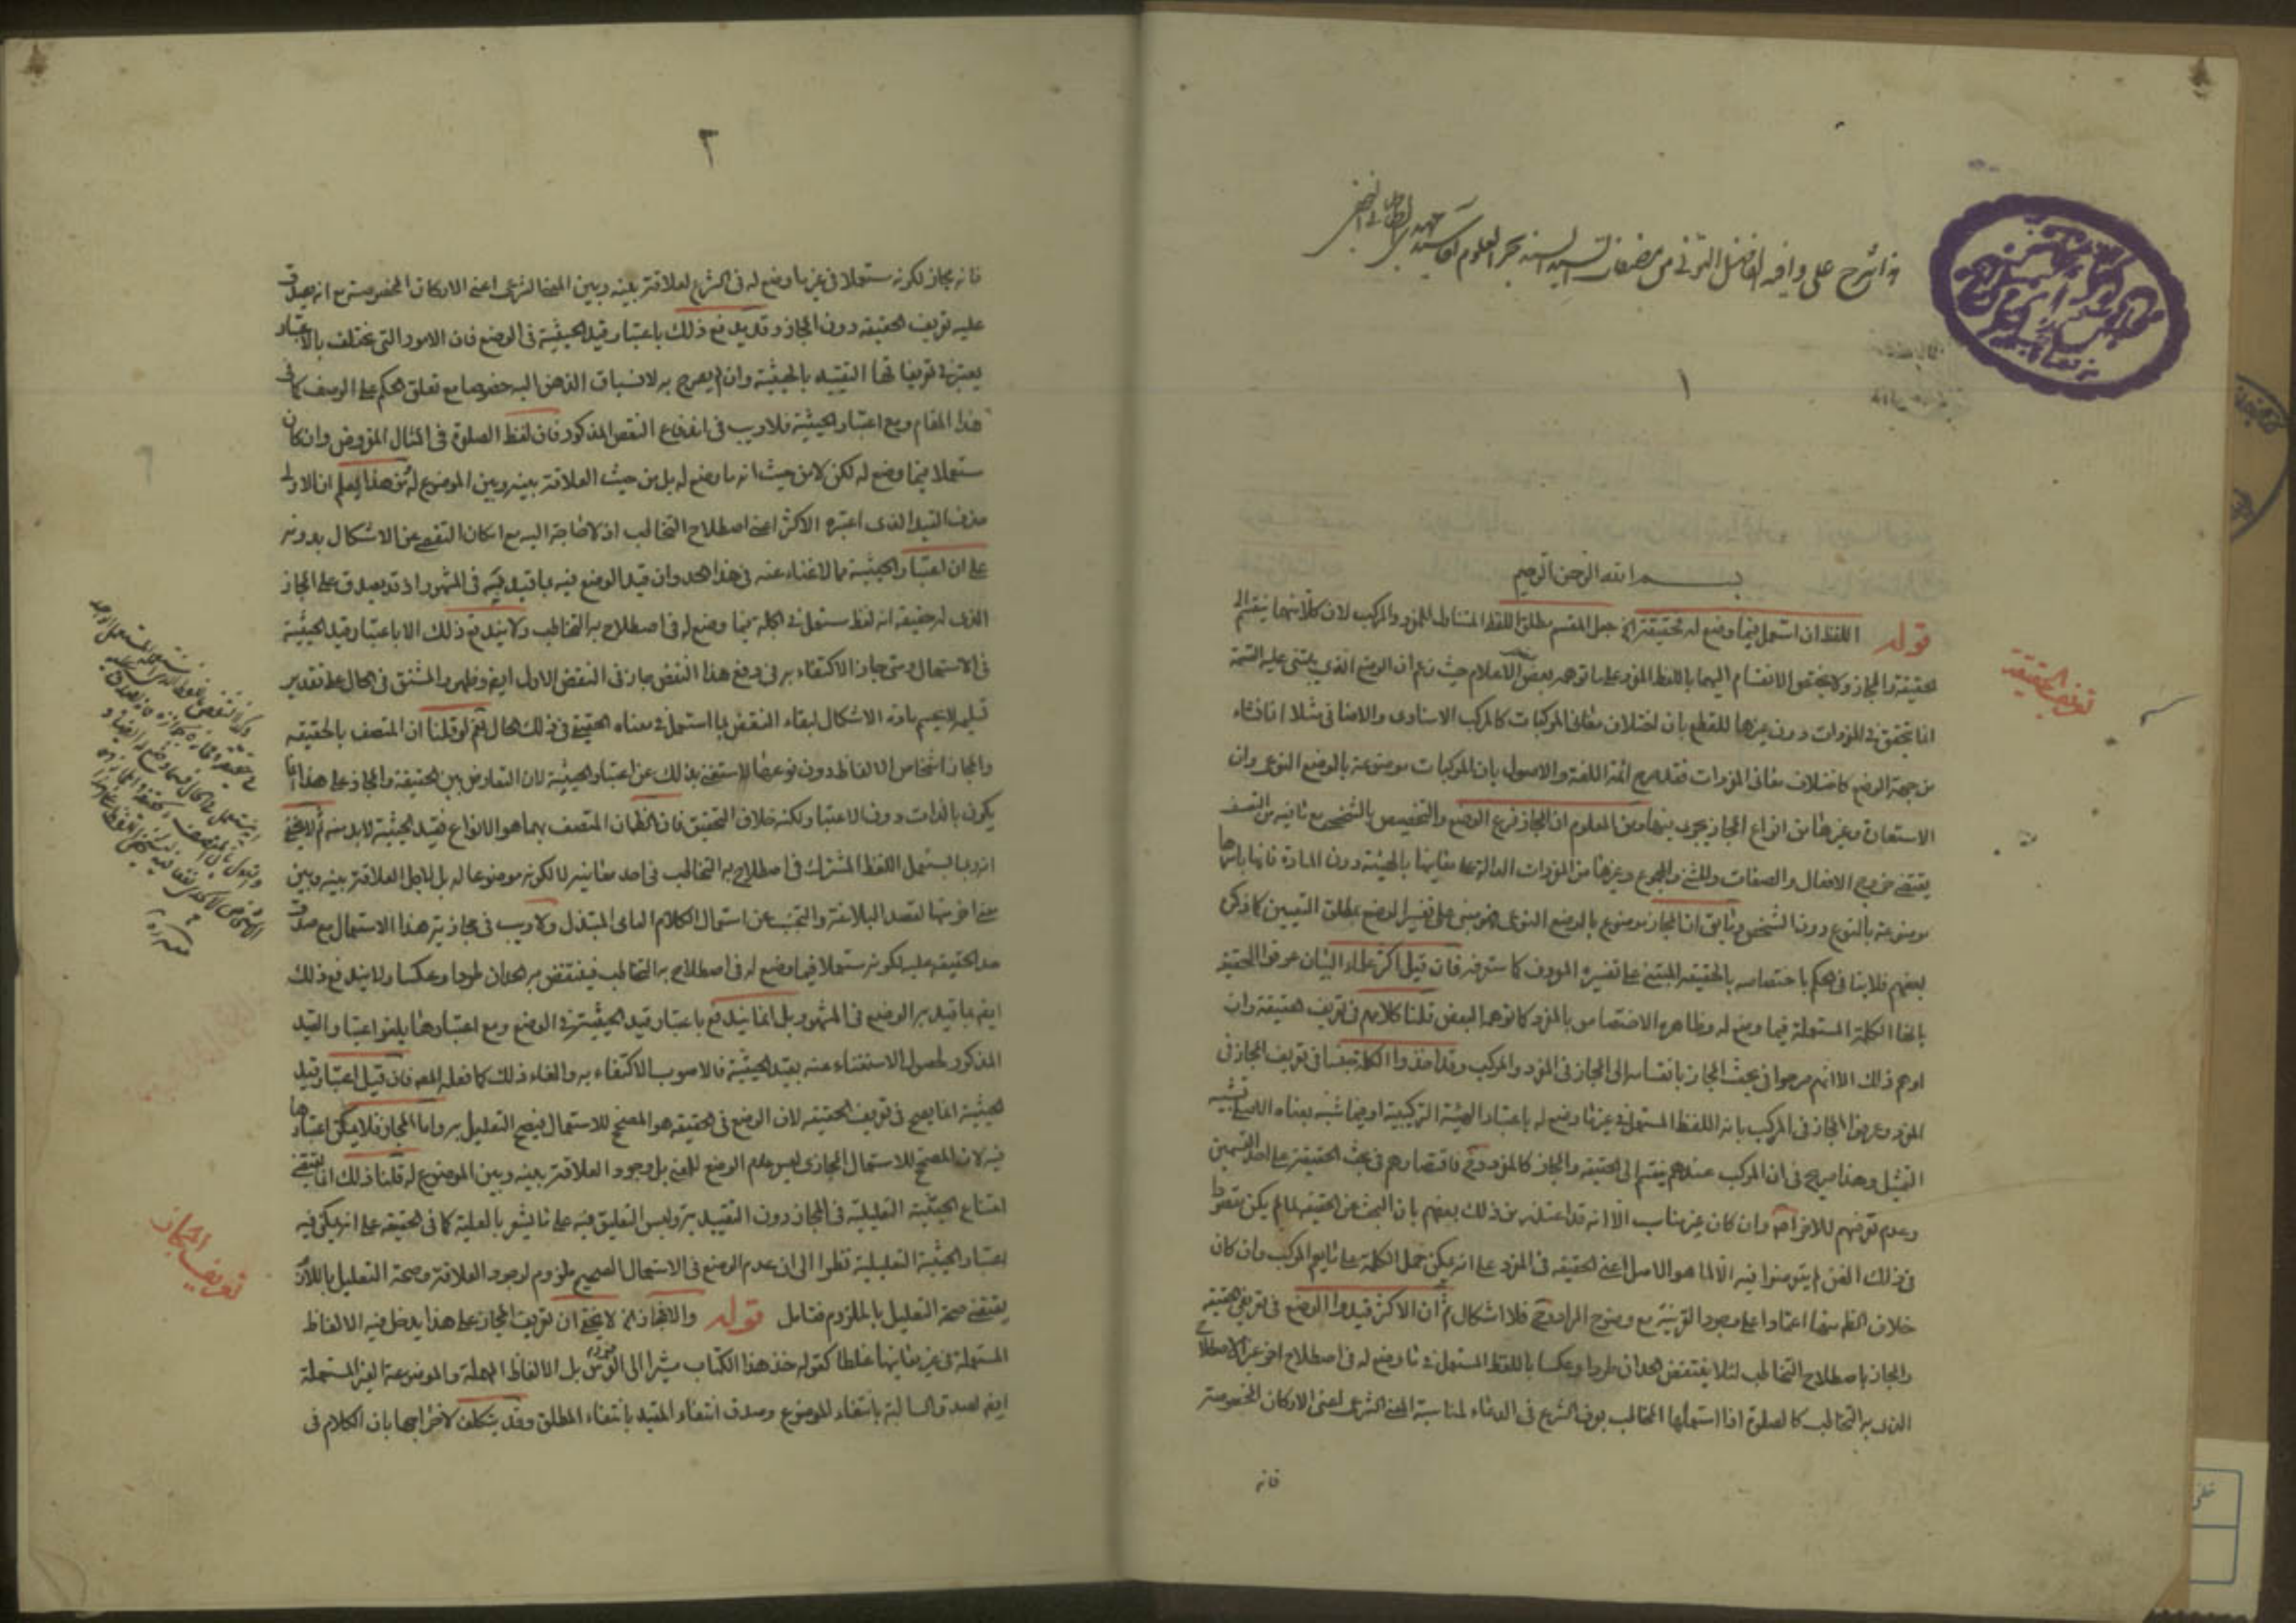 هذا شرح على وافيه الفاضل التوني من مصنفات السيد السند بحر العلوم اقا سيد مهدي الطباطبائي النجفي
١
بسم الله الرحمن الرحيم
قوله اللفظ ان استعمل فيما وضع له فحقيقة الخ جعل المقسم مطلق اللفظ المتناول للمفرد والمركب لان كلا منهما ينقسم الى
الحقيقة والمجاز ولا يختص الانقسام اليهما باللفظ المفرد على ما توهمه بعض الاعلام حيث زعم ان الوضع الذي يبتنى عليه القسمة
انما يتحقق في المفردات دون غيرها للقطع بان اختلاف معاني المركبات كالمركب الاسنادي والاضافي مثلا انما نشاء
من جهة الوضع كاختلاف معاني المفردات فقد صرح ائمة اللغة والاصول بان المركبات موضوعة بالوضع النوعي وان
الاستعارة وغيرها من انواع المجاز يجري فيها ومن المعلوم ان المجاز فرع الوضع والتخصيص بالشخصي مع ما فيه من التعسف
يقتضي خروج الافعال والصفات والمثنى والمجموع وغيرها من المفردات الدالة على معانيها بالهيئة دون المادة فانها باسرها
موضوعة بالنوع دون الشخص وما يق ان المجاز موضوع بالوضع النوعي فهو مبنى على تفسير الوضع بمطلق التعيين كما ذكره
بعضهم فلا ينافي الحكم باختصاصه بالحقيقة المبتني على تفسيره المعروف كما ستعرفه فان قيل اكثر علماء البيان عرفوا الحقيقة
بانها الكلمة المستعملة فيما وضع له وظاهره الاختصاص بالمفرد كما توهمه البعض قلنا كلامهم في تعريف الحقيقة وان
اوهم ذلك الا انهم صرحوا في بحث المجاز بانقسامه الى المجاز في المفرد والمركب وقد اخذوا الكلمة جنسا في تعريف المجاز في
المفرد وعرفوا المجاز في المركب بانه اللفظ المستعمل في غير ما وضع له باعتبار الهيئة التركيبية او فيما شبه بمعناه الاصلي تشبيه
التمثيل وهذا صريح في ان المركب عندهم ينقسم الى الحقيقة والمجاز كالمفرد وح فاقتصارهم في بحث الحقيقة على احد القسمين
وعدم تعرضهم للاخر اصلا وان كان غير مناسب الا انه قد اعتذر عن ذلك بعضهم بان البحث عن الحقيقة لما لم يكن مقصودا
في ذلك الفن لم يتعرضوا فيه الا لما هو الاصل اعني الحقيقة في المفرد على انه يمكن حمل الكلمة على ما يعم المركب وان كان
خلاف الظ منها اعتمادا على وجود القرينة مع وضوح المراد وح فلا اشكال ثم ان الاكثر قيدوا الوضع في تعريفي الحقيقة
والمجاز باصطلاح التخاطب لئلا ينتقض الحدان طردا وعكسا باللفظ المستعمل في ما وضع له في اصطلاح اخر غير الاصطلاح
الذي به التخاطب كالصلوة اذا استعملها المخاطب بعرف الشرع في الدعاء لمناسبة المعنى الشرعي اعني الاركان المخصوصة
فانه
تعريف الحقيقة
٢
فانه مجاز لكونه مستعملا في غير ما وضع له في الشرع لعلاقة بينه وبين المعنى الشرعي اعني الاركان المخصوصة مع انه يصدق
عليه تعريف الحقيقة دون المجاز وقد يدفع ذلك باعتبار قيد الحيثية في الوضع فان الامور التي تختلف بالاعتبار
يعتبر في تعريفاتها التقييد بالحيثية وان لم يصرح به لانسياق الذهن اليه خصوصا مع تعلق الحكم على الوصف كما في
هذا المقام ومع اعتبار الحيثية فلا ريب في اندفاع النقض المذكور فان لفظ الصلوة في المثال المفروض وان كان
مستعملا فيما وضع له لكن لا من حيث انه ما وضع له بل من حيث العلاقة بينه وبين الموضوع له ومن هذا يعلم ان الاولى
حذف القيد الذي اعتبره الاكثر اعني اصطلاح التخاطب اذ لا حاجة اليه مع امكان التفصي عن الاشكال بدونه
على ان اعتبار الحيثية مما لا غناء عنه في هذا الحد وان قيد الوضع فيه بما قيد به في المشهور اذ قد يصدق على المجاز
الذي له حقيقة انه لفظ مستعمل في الجملة فيما وضع له في اصطلاح به التخاطب ولا يندفع ذلك الا باعتبار قيد الحيثية
في الاستعمال ومتى جاز الاكتفاء به في دفع هذا النقض جاز في النقض الاول ايض وظهور المشتق في الحال على تقدير
تسليمه لا يحسم مادة الاشكال لبقاء النقض بما استعمل في معناه الحقيقي في ذلك الحال نعم لو قلنا ان المتصف بالحقيقة
والمجاز اشخاص الالفاظ دون نوعها لاستغنى بذلك عن اعتبار الحيثية لان التعارض بين الحقيقة والمجاز على هذا انما
يكون بالذات دون الاعتبار ولكنه خلاف التحقيق فان الظ ان المتصف بهما هو الانواع فقيد الحيثية لابد منه ثم لا يخفى
انه ربما يستعمل اللفظ المشترك في اصطلاح به التخاطب في احد معانيه لا لكونه موضوعا له بل لاجل العلاقة بينه وبين
معنى اخر منها لقصد البلاغة والتجنب عن استعمال الكلام العامي المبتذل ولا ريب في مجازية هذا الاستعمال مع صدق
حد الحقيقة عليه لكونه مستعملا فيما وضع له في اصطلاح به التخاطب فينتقض به الحدان طردا وعكسا ولا يندفع ذلك
ايض بما قيد به الوضع في المشهور بل انما يندفع باعتبار قيد الحيثية في الوضع ومع اعتبارها يلغو اعتبار القيد
المذكور لحصول الاستغناء عنه بقيد الحيثية فالاصوب الاكتفاء به والغاء ذلك كما فعله المص فان قيل اعتبار قيد
الحيثية انما يصح في تعريف الحقيقة لان الوضع في الحقيقة هو المصحح للاستعمال فيصح التعليل به واما المجاز فلا يمكن اعتبارها
فيه لان المصحح للاستعمال المجازي ليس عدم الوضع للمعنى بل وجود العلاقة بينه وبين الموضوع له قلنا ذلك انما يقتضي
امتناع الحيثية التعليلية في المجاز دون التقييدية وليس التعليق فيه على ما يشعر بالعلية كما في الحقيقة على انه يمكن فيه
اعتبار الحيثية التعليلية نظرا الى ان عدم الوضع في الاستعمال الصحيح ملزوم لوجود العلاقة وصحة التعليل باللازم
يقتضي صحة التعليل بالملزوم فتامل قوله والا فمجاز لا يخفى ان تعريف المجاز على هذا يدخل فيه الالفاظ
المستعملة في غير معانيها غلطا كقوله خذ هذا الكتاب مشيرا الى الفرس بل الالفاظ المهملة والموضوعة الغير المستعملة
ايض لصدق السالبة بانتفاء الموضوع وصدق انتفاء المقيد بانتفاء المطلق وقد يتكلف لاخراجها بان الكلام في
تعريف المجاز